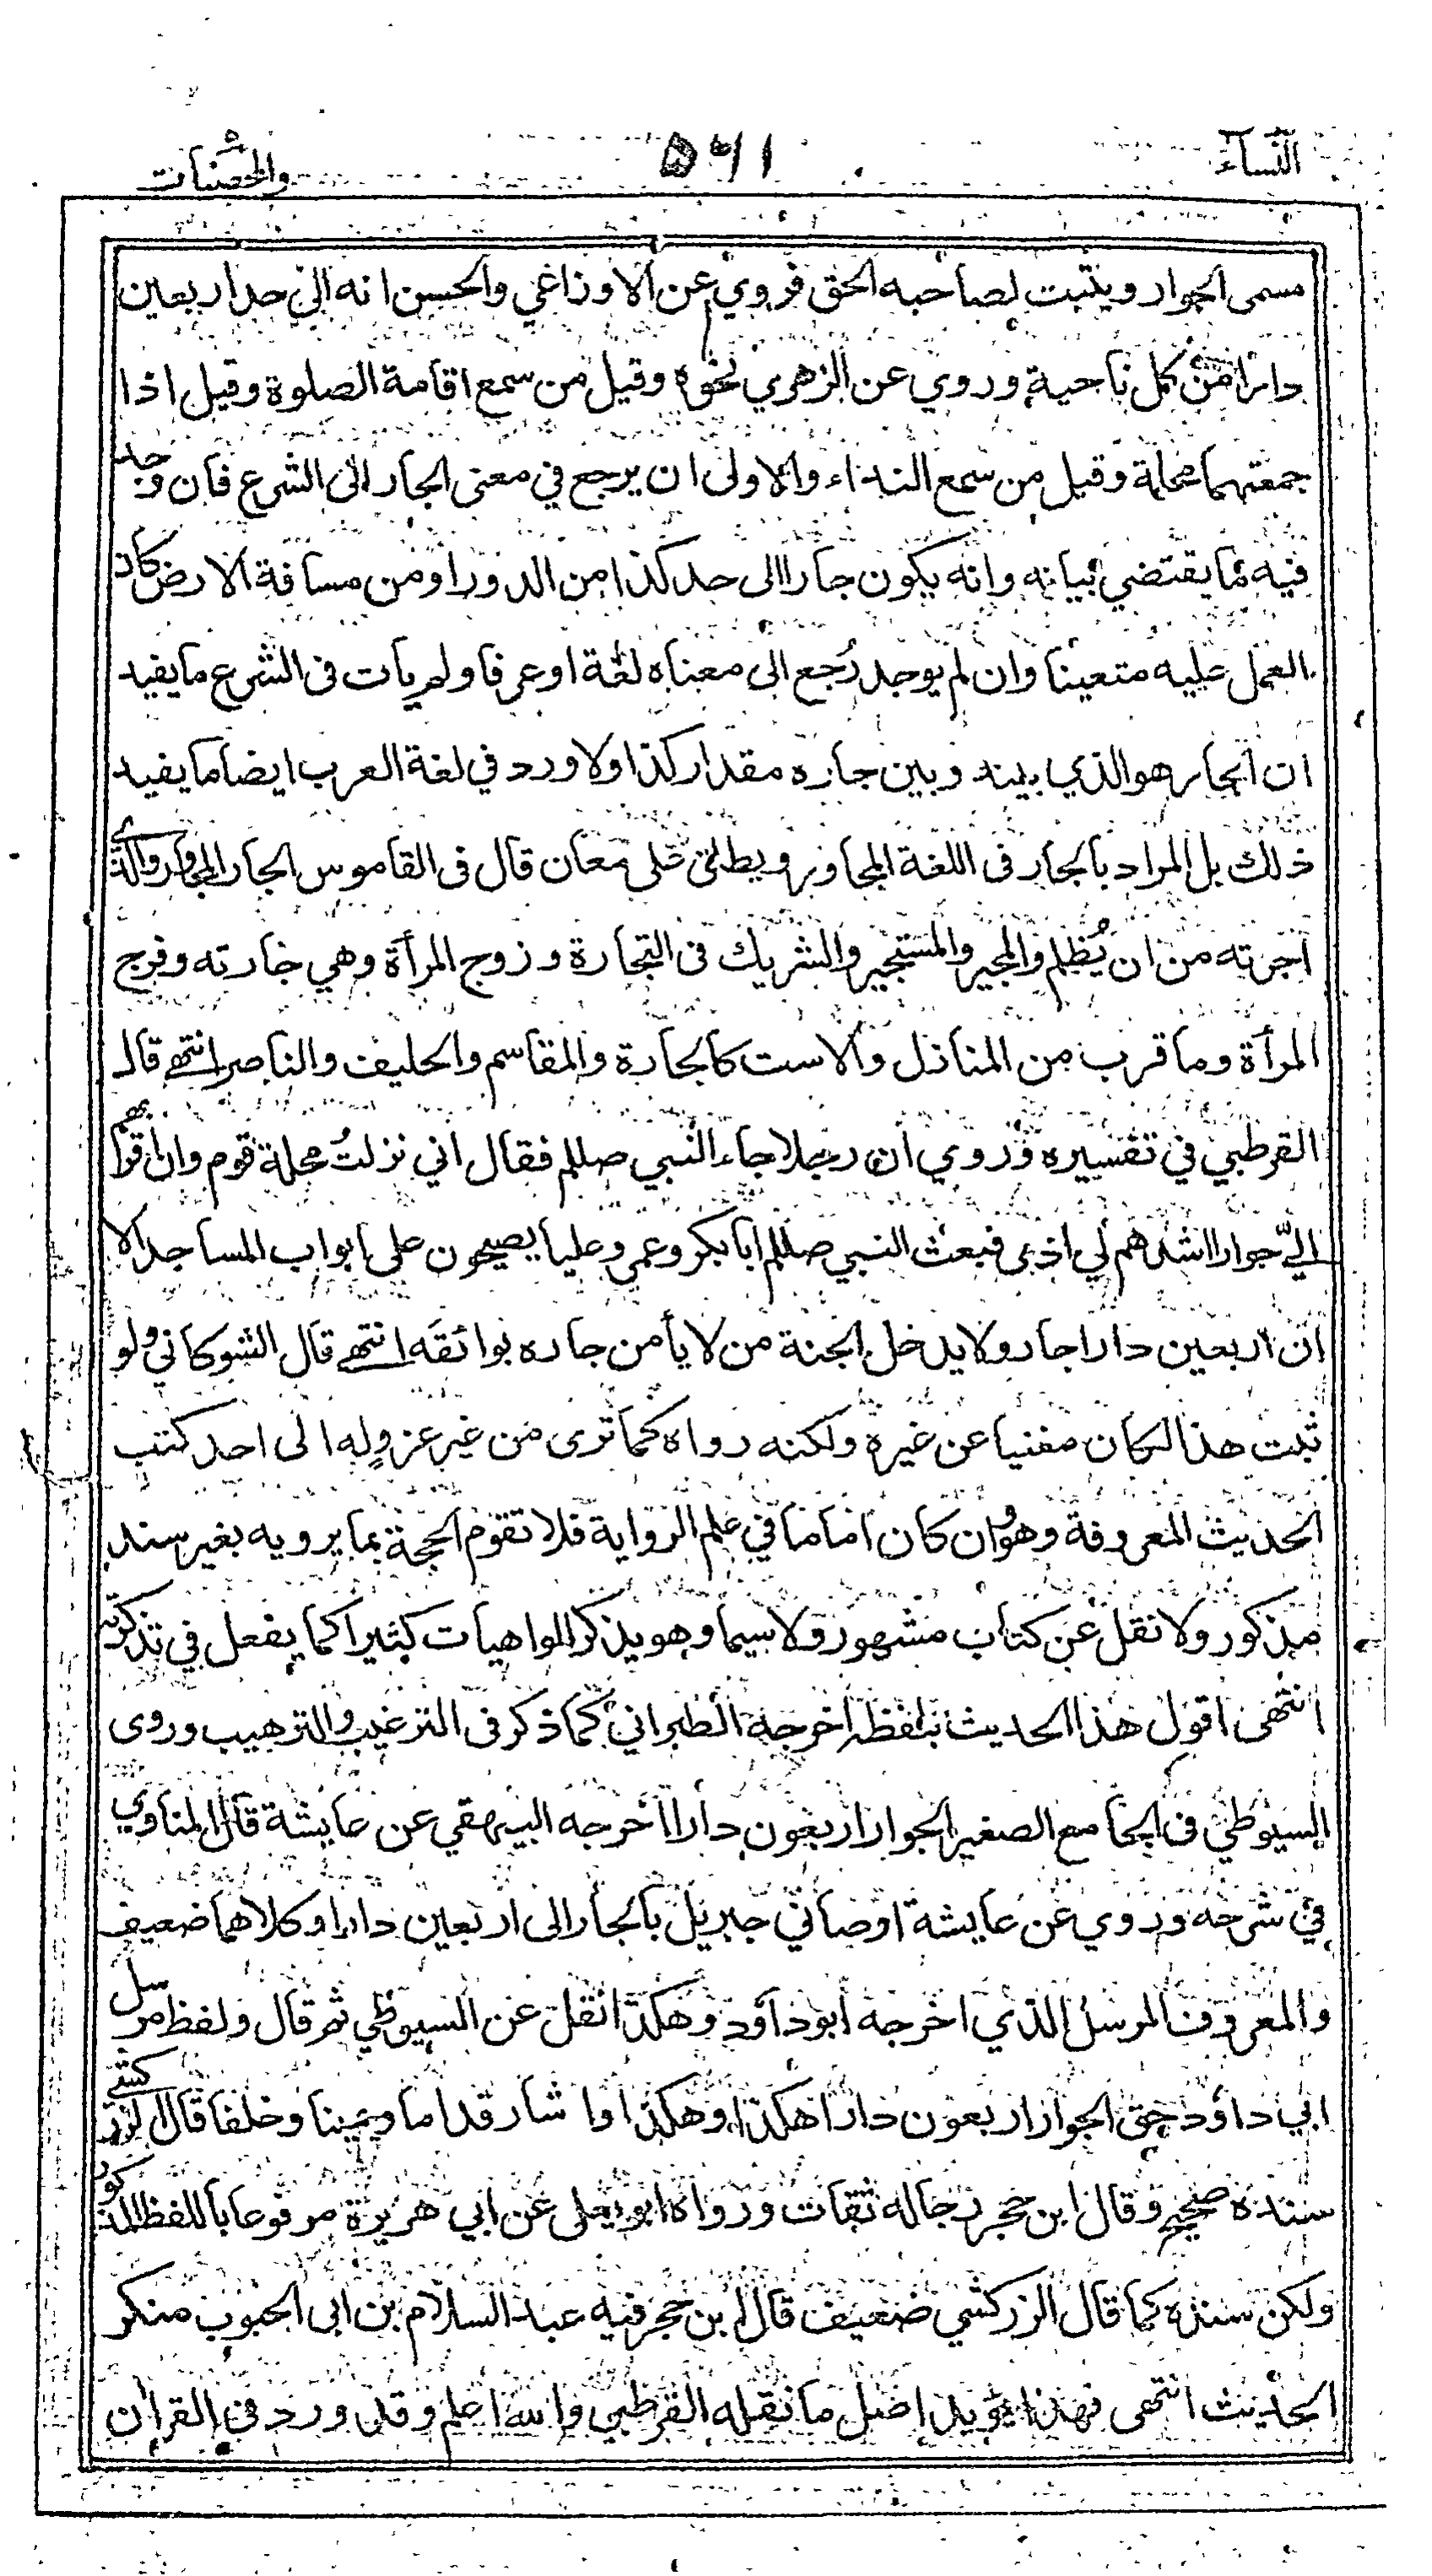 النسآء ٥٦١ والمحصنات ٥
مسمى الجوار ويثبت لصاحبه الحق فروي عن الاوزاعي والحسن انه الى حد اربعين
دارا من كل ناحية وروي عن الزهري نحوه وقيل من سمع اقامة الصلوة وقيل اذا
جمعتهما محلة وقيل من سمع النداء والاولى ان يرجع في معنى الجار الى الشرع فان وجد
فيه ما يقتضي بيانه وانه يكون جارا الى حد كذا من الدور او من مسافة الارض كان
العمل عليه متعينا وان لم يوجد رُجع الى معناه لغة او عرفا ولم يات في الشرع ما يفيد
ان الجار هو الذي بينه وبين جاره مقدار كذا ولا ورد في لغة العرب ايضا ما يفيد
ذلك بل المراد بالجار في اللغة المجاور ويطلق على معان قال في القاموس الجار المجاور والذي
اجرته من ان يُظلم والمجير والمستجير والشريك في التجارة وزوج المرأة وهي جارته وفرج
المرأة وما قرب من المنازل والاست كالجارة والمقاسم والحليف والناصر انتهى قال
القرطبي في تفسيره وروي ان رجلا جاء النبي صللم فقال اني نزلتُ محلة قوم وان اقربهم
اليّ جوارا اشدهم لي اذى فبعث النبي صللم ابا بكر وعمر وعليا يصيحون على ابواب المساجد الا
ان اربعين دارا جار ولا يدخل الجنة من لا يأمن جاره بوائقه انتهى قال الشوكاني ولو
ثبت هذا لكان مغنيا عن غيره ولكنه رواه كما ترى من غير عزوٍ له الى احد كتب
الحديث المعروفة وهو وان كان اماما في علم الرواية فلا تقوم الحجة بما يرويه بغير سند
مذكور ولا نقل عن كتاب مشهور ولا سيما وهو يذكر الواهيات كثيرا كما يفعل في تذكرته
انتهى اقول هذا الحديث بلفظه اخرجه الطبراني كما ذكر في الترغيب والترهيب وروى
السيوطي في الجامع الصغير الجوار اربعون دارا اخرجه البيهقي عن عايشة قال المناوي
في شرحه وروي عن عايشة اوصاني جبريل بالجار الى اربعين دارا وكلاهما ضعيف
والمعروف المرسل الذي اخرجه ابو داود وهكذا نقل عن السيوطي ثم قال ولفظ مرسل
ابي داود حق الجوار اربعون دارا هكذا وهكذا واشار قداما ويمينا وخلفا قال الزركشي
سنده صحيح وقال ابن حجر رجاله ثقات ورواه ابو يعلى عن ابي هريرة مرفوعا باللفظ المذكور
ولكن سنده كما قال الزركشي ضعيف قال ابن حجر فيه عبد السلام بن ابي الجنوب منكر
الحديث انتهى فهذا يؤيد اصل ما نقله القرطبي والله اعلم وقد ورد في القران